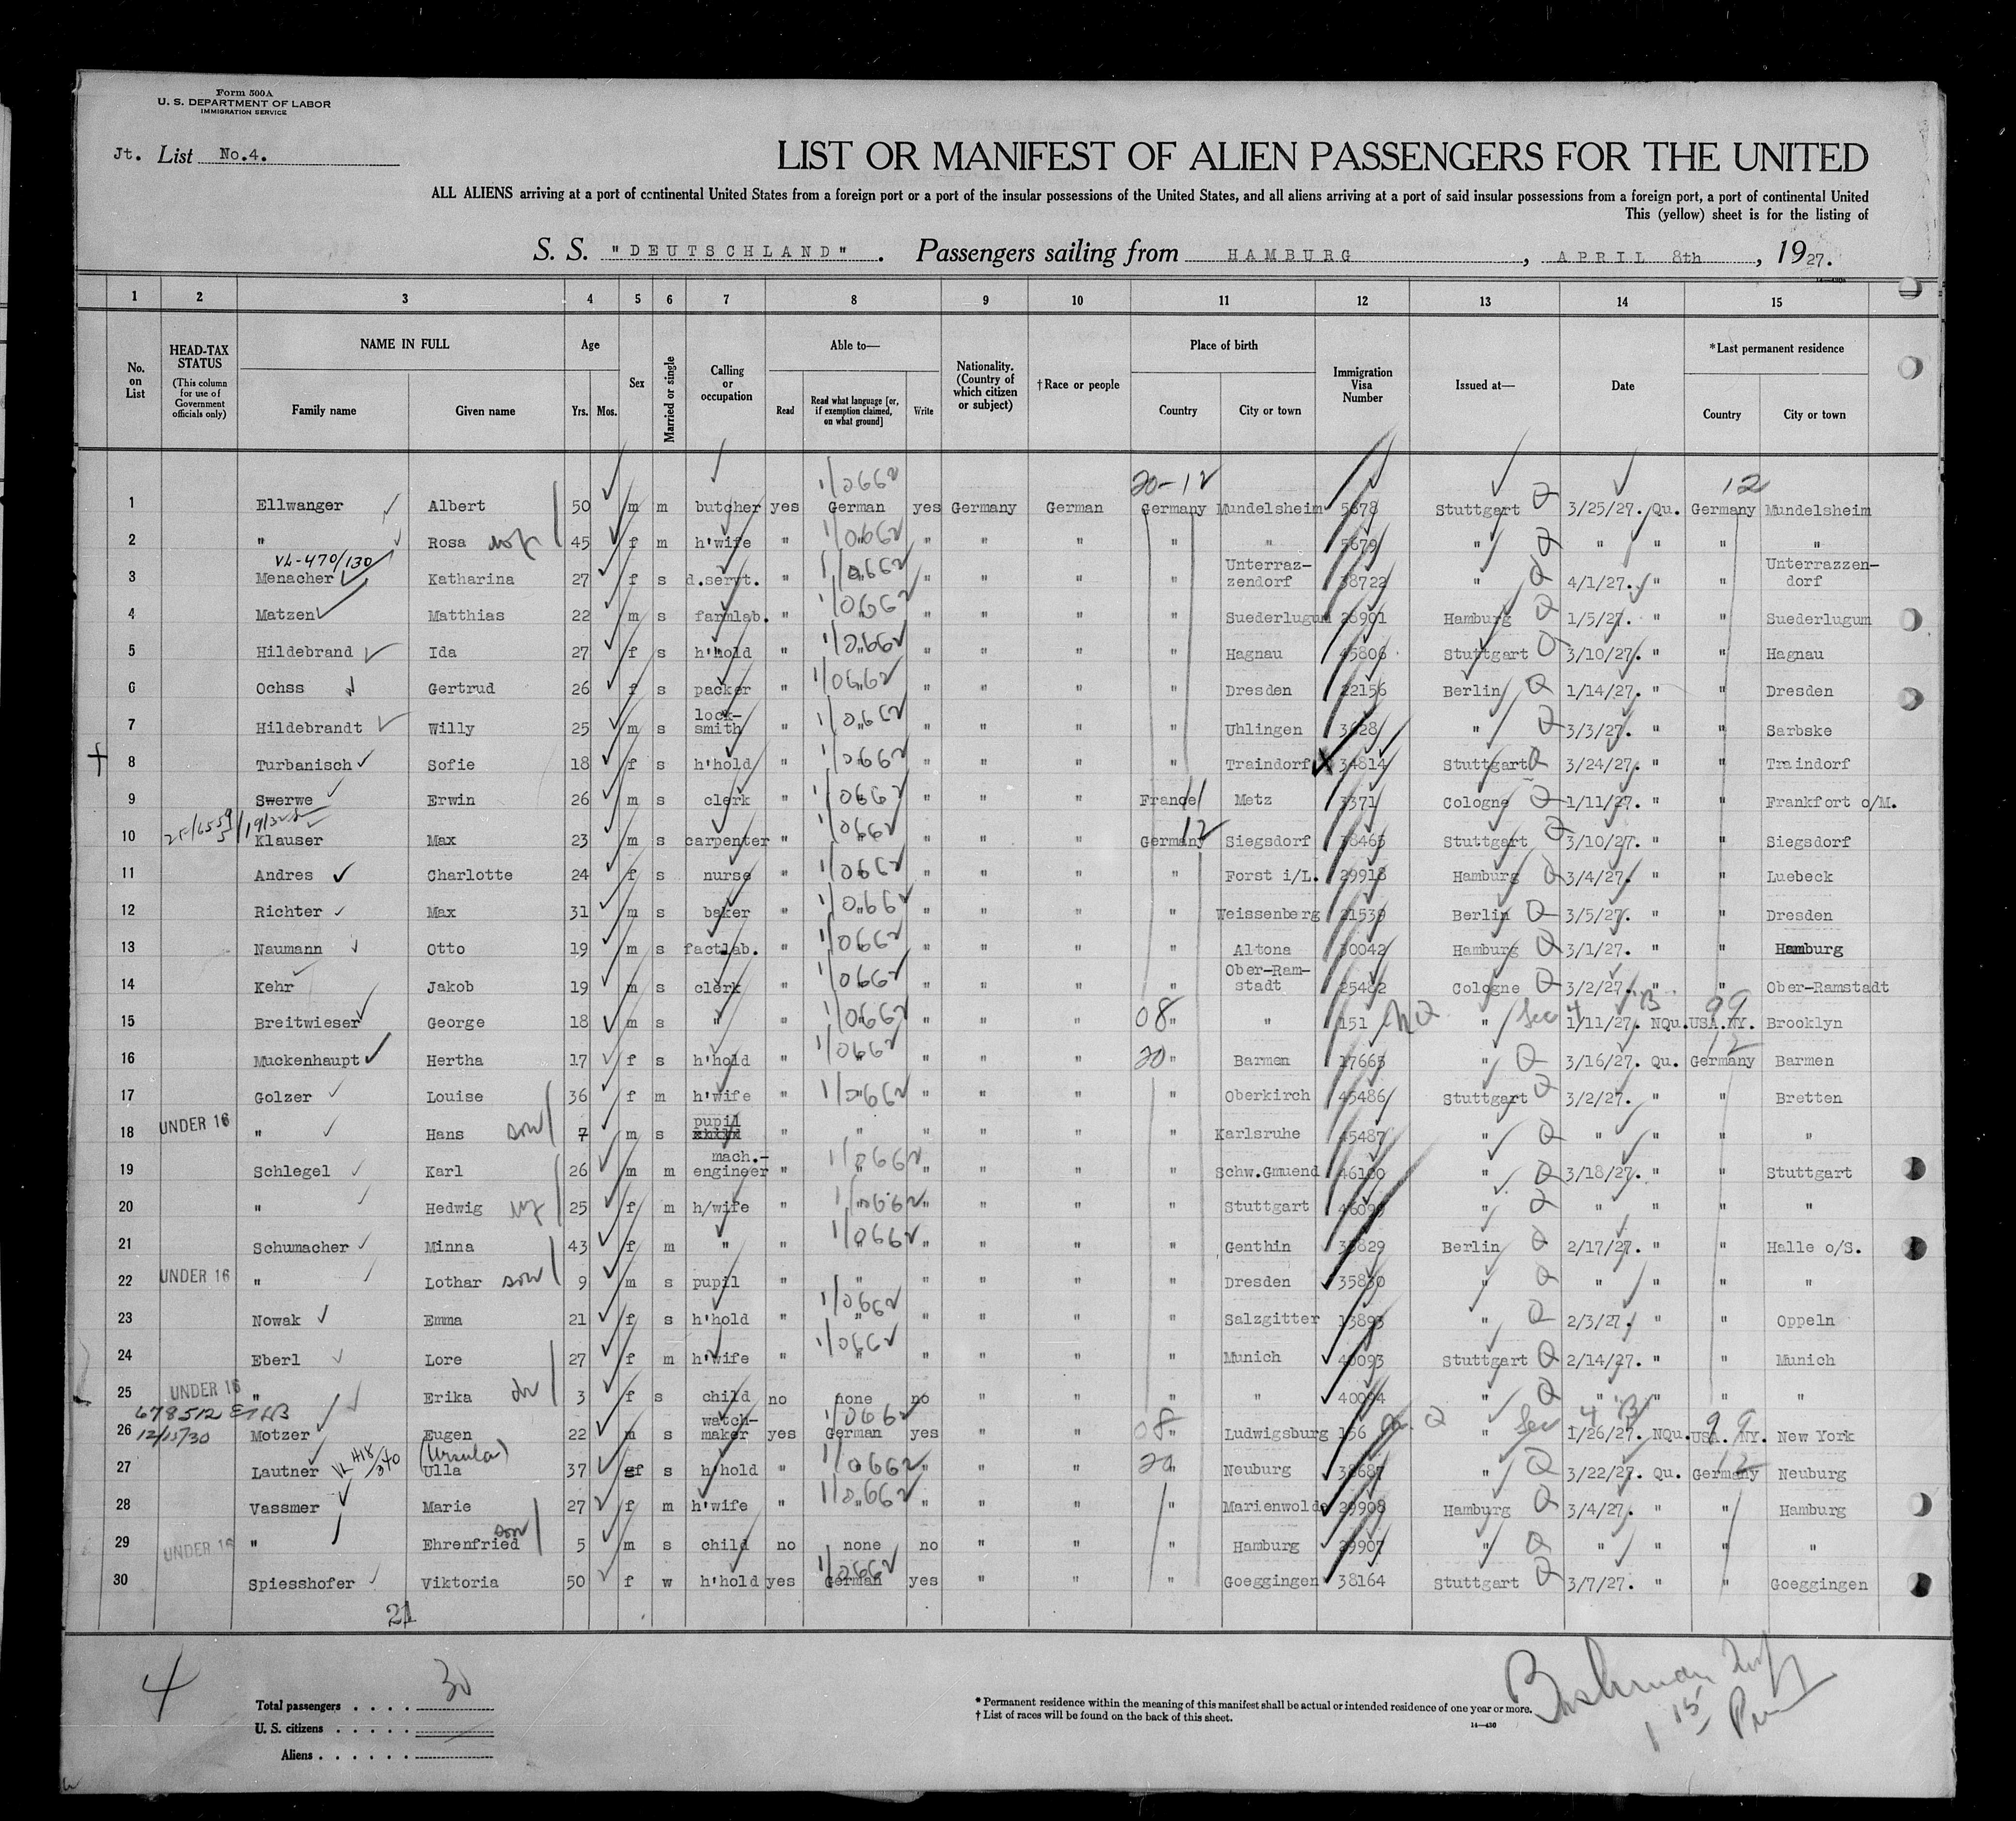 Form 500A
U. S. DEPARTMENT OF LABOR
IMMIGRATION SERVICE
Jt. List No.4.
LIST OR MANIFEST OF ALIEN PASSENGERS FOR THE UNITED
ALL ALIENS arriving at a port of continental United States from a foreign port or a port of the insular possessions of the United States, and all aliens arriving at a port of said insular possessions from a foreign port, a port of continental United
This (yellow) sheet is for the listing of
S. S. "DEUTSCHLAND". Passengers sailing from HAMBURG, APRIL 8th, 1927.
14—430
1 2 3 4 5 6 7 8 9 10 11 12 13 14 15
No. on List
HEAD-TAX STATUS (This column for use of Government officials only)
NAME IN FULL
Family name Given name
Age
Yrs. Mos.
Sex
Married or single
Calling or occupation
Able to—
Read
Read what language [or, if exemption claimed, on what ground]
Write
Nationality. (Country of which citizen or subject)
†Race or people
Place of birth
Country City or town
Immigration Visa Number
Issued at—
Date
*Last permanent residence
Country City or town
1/0662 20-12 12
1 Ellwanger Albert 50 m m butcher yes German yes Germany German Germany Mundelsheim 5678 Stuttgart Q 3/25/27. Qu. Germany Mundelsheim
2 " Rosa 45 f m h'wife " 1/0662 " " " " " 5679 " Q " " " "
VL-470/130
3 Menacher Katharina 27 f s d.servt. " 1/0662 " " " " Unterraz-zendorf 38722 " Q 4/1/27. " " Unterrazzen-dorf
4 Matzen Matthias 22 m s farmlab. " 1/0662 " " " " Suederlugum 26901 Hamburg Q 1/5/27. " " Suederlugum
5 Hildebrand Ida 27 f s h'hold " 1/0662 " " " " Hagnau 45806 Stuttgart Q 3/10/27. " " Hagnau
6 Ochss Gertrud 26 f s packer " 1/0662 " " " " Dresden 22156 Berlin Q 1/14/27. " " Dresden
7 Hildebrandt Willy 25 m s lock-smith " 1/0662 " " " " Uhlingen 3628 " Q 3/3/27. " " Sarbske
8 Turbanisch Sofie 18 f s h'hold " 1/0662 " " " " Traindorf X 34814 Stuttgart Q 3/24/27. " " Traindorf
9 Swerwe Erwin 26 m s clerk " 1/0662 " " " France Metz 3371 Cologne Q 1/11/27. " " Frankfort o/M.
10 Klauser Max 23 m s carpenter " 1/0662 " " " Germany 12 Siegsdorf 38465 Stuttgart Q 3/10/27. " " Siegsdorf
11 Andres Charlotte 24 f s nurse " 1/0662 " " " " Forst i/L. 29918 Hamburg Q 3/4/27. " " Luebeck
12 Richter Max 31 m s baker " 1/0662 " " " " Weissenberg 21539 Berlin Q 3/5/27. " " Dresden
13 Naumann Otto 19 m s factlab. " 1/0662 " " " " Altona 30042 Hamburg Q 3/1/27. " " Hamburg
14 Kehr Jakob 19 m s clerk " 1/0662 " " " " Ober-Ram-stadt 25482 Cologne Q 3/2/27. " " Ober-Ramstadt
15 Breitwieser George 18 m s " " 1/0662 " " " 08 " " 151 NQ " Sec 4 B 1/11/27. NQu. 99 USA.NY. Brooklyn
16 Muckenhaupt Hertha 17 f s h'hold " 1/0662 " " " 20 " Barmen 17665 " Q 3/16/27. Qu. 12 Germany Barmen
17 Golzer Louise 36 f m h'wife " 1/0662 " " " " Oberkirch 45486 Stuttgart Q 3/2/27. " " Bretten
18 UNDER 16 " Hans son 7 m s pupil " " " " " " Karlsruhe 45487 " Q " " " "
19 Schlegel Karl 26 m m mach.-engineer " 1/0662 " " " " Schw.Gmuend 46100 " Q 3/18/27. " " Stuttgart
20 " Hedwig 25 f m h/wife " 1/0662 " " " " Stuttgart 46099 " Q " " " "
21 Schumacher Minna 43 f m " " 1/0662 " " " " Genthin 35829 Berlin Q 2/17/27. " " Halle o/S.
22 UNDER 16 " Lothar son 9 m s pupil " " " " " " Dresden 35830 " Q " " " "
23 Nowak Emma 21 f s h'hold " 1/0662 " " " " Salzgitter 13893 " Q 2/3/27. " " Oppeln
24 Eberl Lore 27 f m h'wife " 1/0662 " " " " Munich 40093 Stuttgart Q 2/14/27. " " Munich
25 UNDER 16 " Erika 3 f s child no none no " " " " 40094 " Q " " " "
678512
12/15/30
26 Motzer Eugen 22 m s watch-maker yes 1/0662 German yes " " 08 " Ludwigsburg 156 Q " Sec 4 B 1/26/27. NQu. 99 USA. NY. New York
(Ursula)
27 Lautner Ulla 37 f s h'hold " 1/0662 " " " 20 " Neuburg 38687 " Q 3/22/27. Qu. 12 Germany Neuburg
28 Vassmer Marie 27 f m h'wife " 1/0662 " " " " Marienwolde 29908 Hamburg Q 3/4/27. " " Hamburg
29 UNDER 16 " Ehrenfried son 5 m s child no none no " " " Hamburg 29907 " Q " " " "
30 Spiesshofer Viktoria 50 f w h'hold yes 1/0662 German yes " " " Goeggingen 38164 Stuttgart Q 3/7/27. " " Goeggingen
21
4
Total passengers . . . . 30
U. S. citizens . . . . .
Aliens . . . . . .
* Permanent residence within the meaning of this manifest shall be actual or intended residence of one year or more.
† List of races will be found on the back of this sheet.
14—430
15